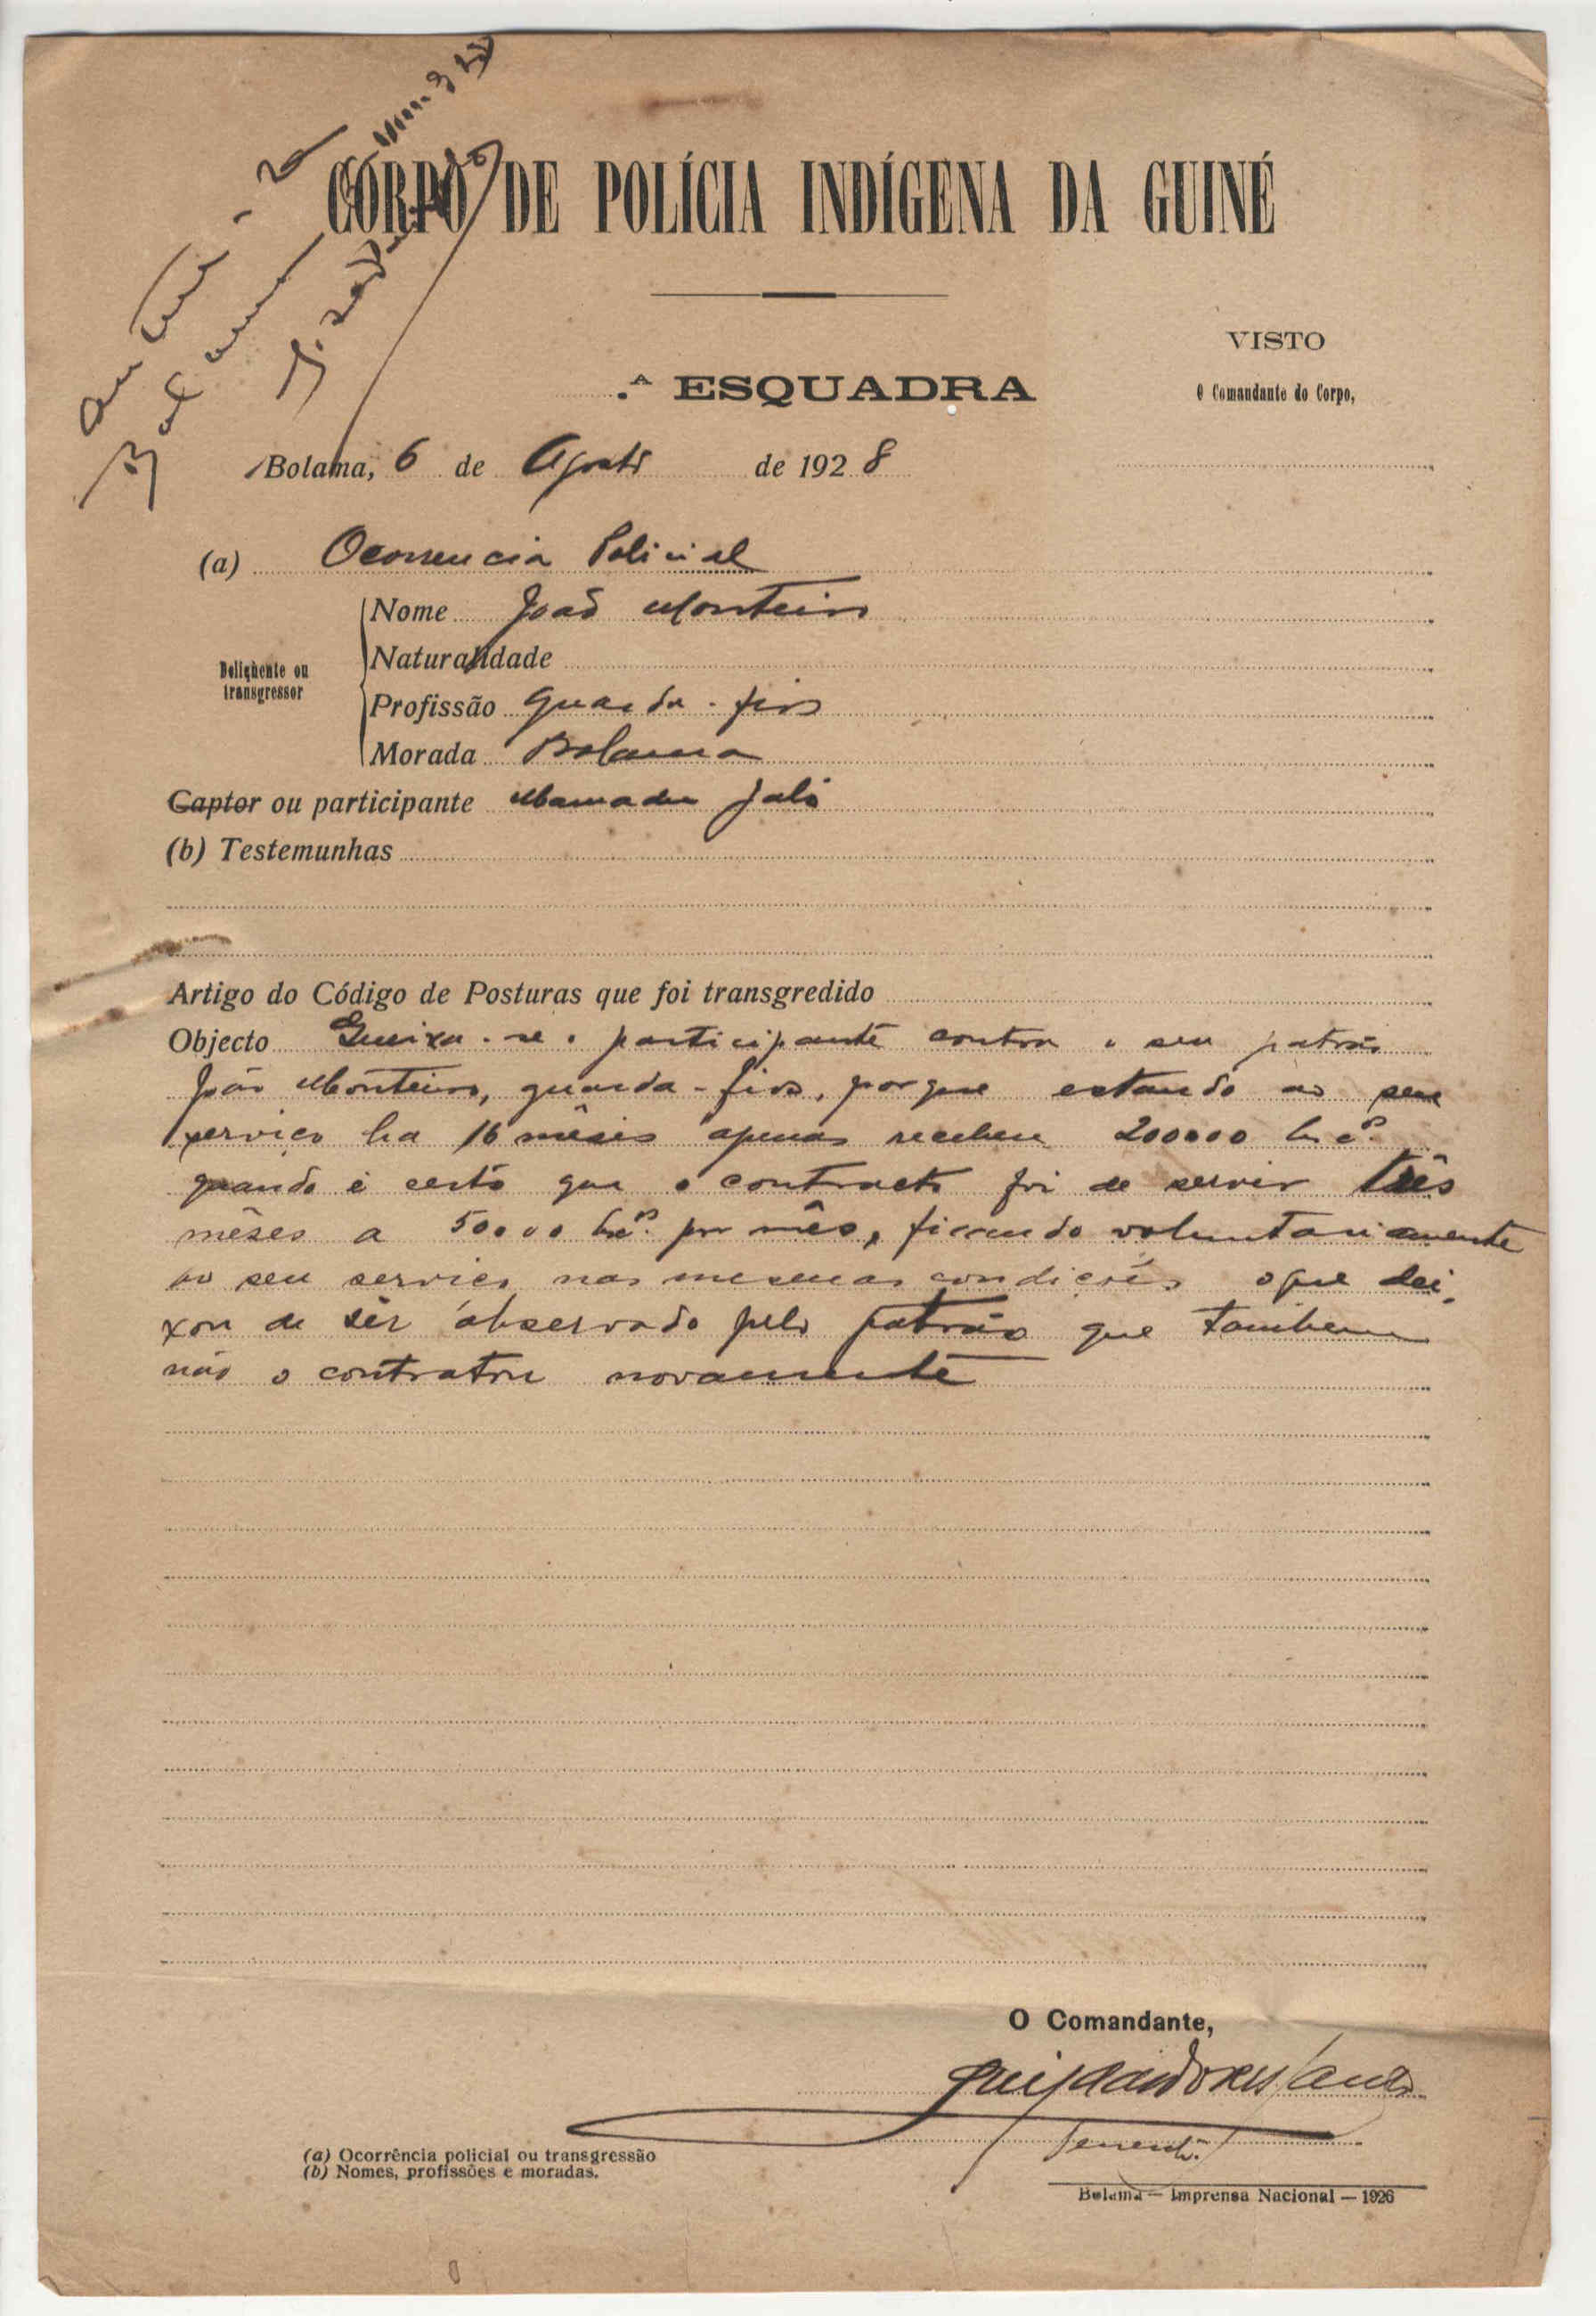 CORPO DE POLÍCIA INDÍGENA DA GUINÉ
VISTO
O Comandante do Corpo,
.ª ESQUADRA
Bolama, 6 de Agosto de 1928
(a) Ocorrencia Policial
Delinqüente ou transgressor
Nome João Monteiro
Naturalidade
Profissão guarda-fios
Morada Bolama
Captor ou participante Mamadu Jaló
(b) Testemunhas
Artigo do Código de Posturas que foi transgredido
Objecto Queixa-se o participante contra o seu patrão
João Monteiro, guarda-fios, porque estando ao seu
serviço ha 16 mêses apenas recebeu 200$00
quando é certo que o contracto foi de servir três
mêses a 50$00 por mês, ficando voluntariamente
ao seu serviço nas mesmas condições o que dei-
xou de sêr observado pelo patrão que tambem
não o contratou novamente
O Comandante,
Tenente
(a) Ocorrência policial ou transgressão
(b) Nomes, profissões e moradas.
Bolama — Imprensa Nacional — 1926